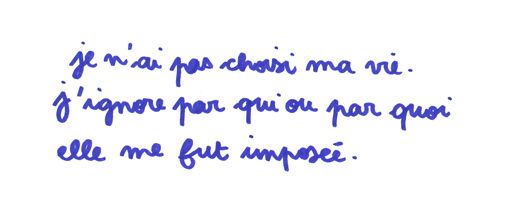 je n'ai pas choisi ma vie.
j'ignore par qui ou par quoi
elle me fut imposée.